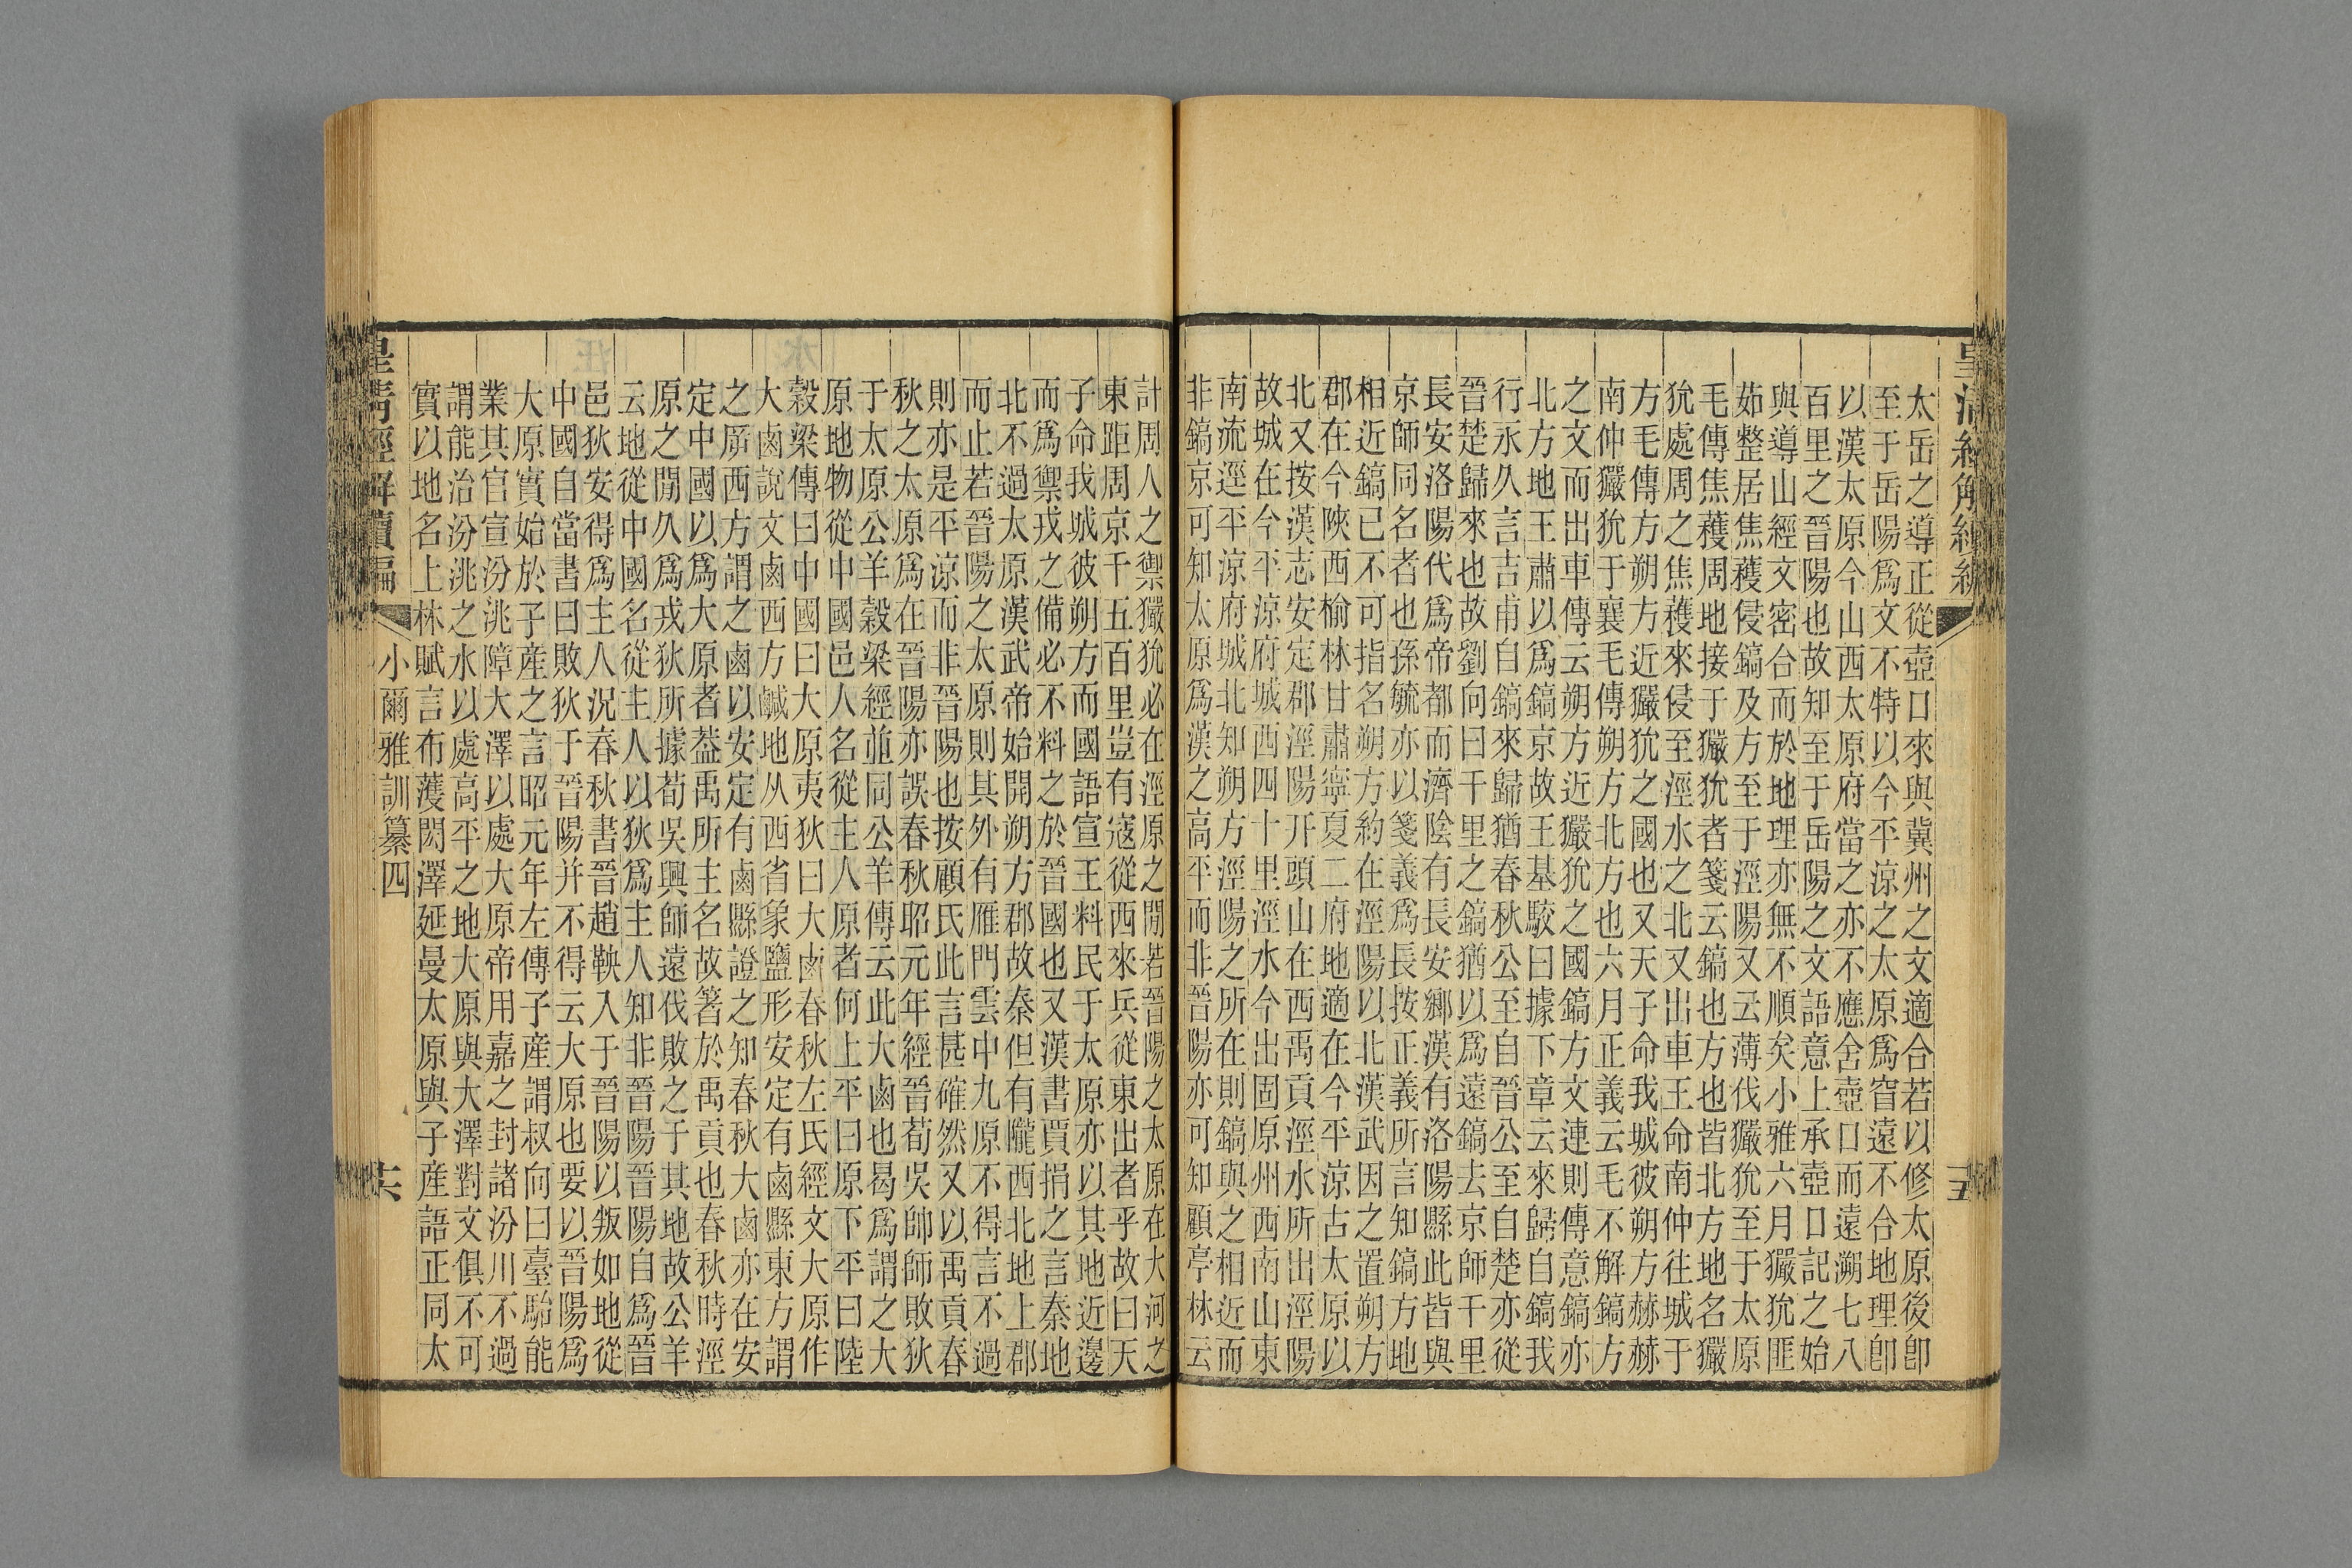 皇清經解續編
太岳之導正從壺口來與冀州之文適合若以修太原後卽
至于岳陽爲文不特以今平涼之太原爲窅遠不合地理卽
以漢太原今山西太原府當之亦不應舍壺口而遠溯七八
百里之晉陽也故知至于岳陽之文語意上承壺口記之始
與導山經文密合而於地理亦無不順矣小雅六月玁狁匪
茹整居焦穫侵鎬及方至于涇陽又云薄伐玁狁至于太原
毛傳焦穫周地接于玁狁者箋云鎬也方也皆北方地名玁
狁處周之焦穫來侵至涇水之北又出車王命南仲往城于
方毛傳方朔方近玁狁之國也又天子命我城彼朔方赫赫
南仲玁狁于襄毛傳朔方北方也六月正義云毛不解鎬方
之文而出車傳云朔方近玁狁之國鎬方文連則傳意鎬亦
北方地王肅以爲鎬京故王基駮曰據下章云來歸自鎬我
行永久言吉甫自鎬來歸猶春秋公至自晉公至自楚亦從
晉楚歸來也故劉向曰千里之鎬猶以爲遠鎬去京師千里
長安洛陽代爲帝都而濟陰有長安鄉漢有洛陽縣此皆與
京師同名者也孫毓亦以箋義爲長按正義所言知鎬方地
相近鎬已不可指名朔方約在涇陽以北漢武因之置朔方
郡在今陝西榆林甘肅寧夏二府地適在今平涼古太原以
北又按漢志安定郡涇陽幵頭山在西禹貢涇水所出涇陽
故城在今平涼府城西四十里涇水今出固原州西南山東
南流逕平涼府城北知朔方涇陽之所在則鎬與之相近而
非鎬京可知太原爲漢之高平而非晉陽亦可知顧亭林云
計周人之禦玁狁必在涇原之閒若晉陽之太原在大河之
東距周京千五百里豈有寇從西來兵從東出者乎故曰天
子命我城彼朔方而國語宣王料民于太原亦以其地近邊
而爲禦戎之備必不料之於晉國也又漢書賈捐之言秦地
北不過太原漢武帝始開朔方郡故秦但有隴西北地上郡
而止若晉陽之太原則其外有雁門雲中九原不得言不過
則亦是平涼而非晉陽也按顧氏此言甚確然又以禹貢春
秋之太原爲在晉陽亦誤春秋昭元年經晉荀吳帥師敗狄
于太原公羊穀梁經並同公羊傳云此大鹵也曷爲謂之大
原地物從中國邑人名從主人原者何上平曰原下平曰陸
穀梁傳曰中國曰大原夷狄曰大鹵春秋左氏經文大原作
大鹵說文鹵西方鹹地从西省象鹽形安定有鹵縣東方謂
之㡿西方謂之鹵以安定有鹵縣證之知春秋大鹵亦在安
定中國以爲大原者葢禹所主名故箸於禹貢也春秋時涇
原之閒久爲戎狄所據荀吳興師遠伐敗之于其地故公羊
云地從中國名從主人以狄爲主人知非晉陽晉陽自爲晉
邑狄安得爲主人況春秋書晉趙鞅入于晉陽以叛如地從
中國自當書曰敗狄于晉陽并不得云大原也要以晉陽爲
大原實始於子產之言昭元年左傳子產謂叔向曰臺駘能
業其官宣汾洮障大澤以處大原帝用嘉之封諸汾川不過
謂能治汾洮之水以處高平之地大原與大澤對文俱不可
實以地名上林賦言布濩閎澤延曼太原與子產語正同太
皇清經解續編
小爾雅訓纂四